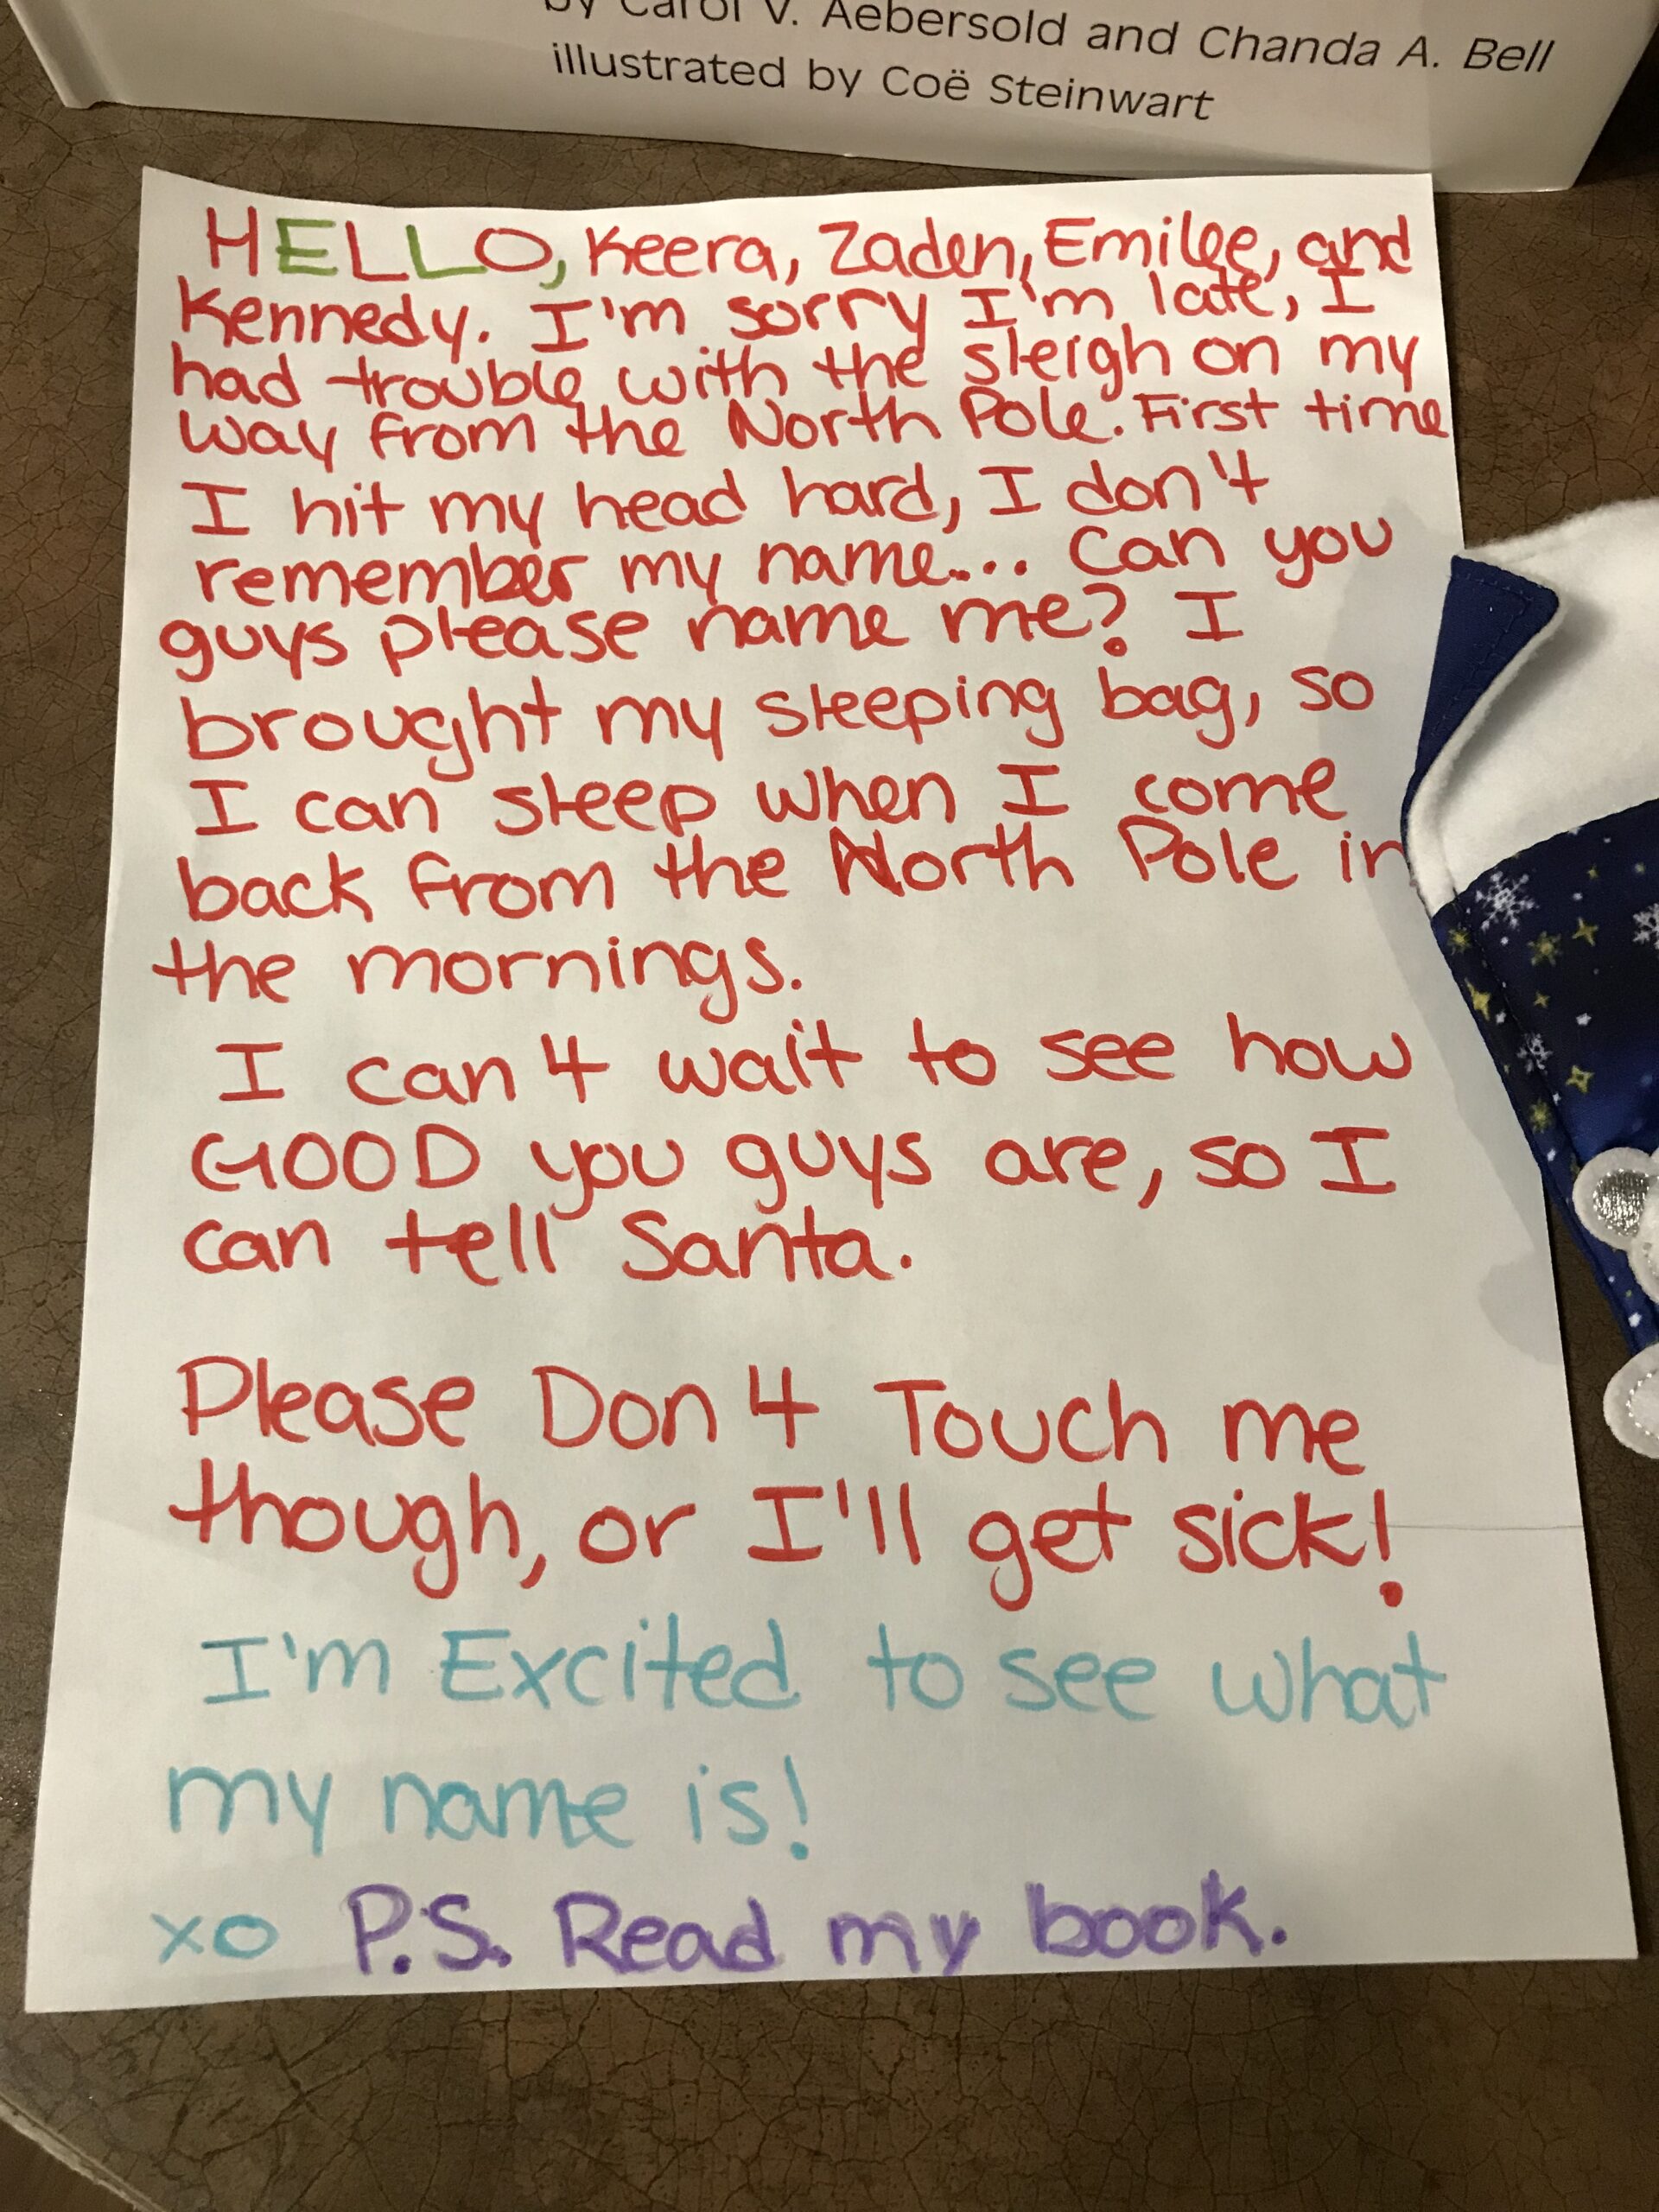 by Carol V. Aebersold and Chanda A. Bell
illustrated by Coë Steinwart
HELLO, Keera, Zaden, Emilee, and
Kennedy. I'm sorry I'm late, I
had trouble with the sleigh on my
way from the North Pole. First time
I hit my head hard, I don't
remember my name.... Can you
guys please name me? I
brought my sleeping bag, so
I can sleep when I come
back from the North Pole in
the mornings.
I can't wait to see how
GOOD you guys are, so I
can tell Santa.
Please Don't Touch me
though, or I'll get sick!
I'm Excited to see what
my name is!
xo P.S. Read my book.